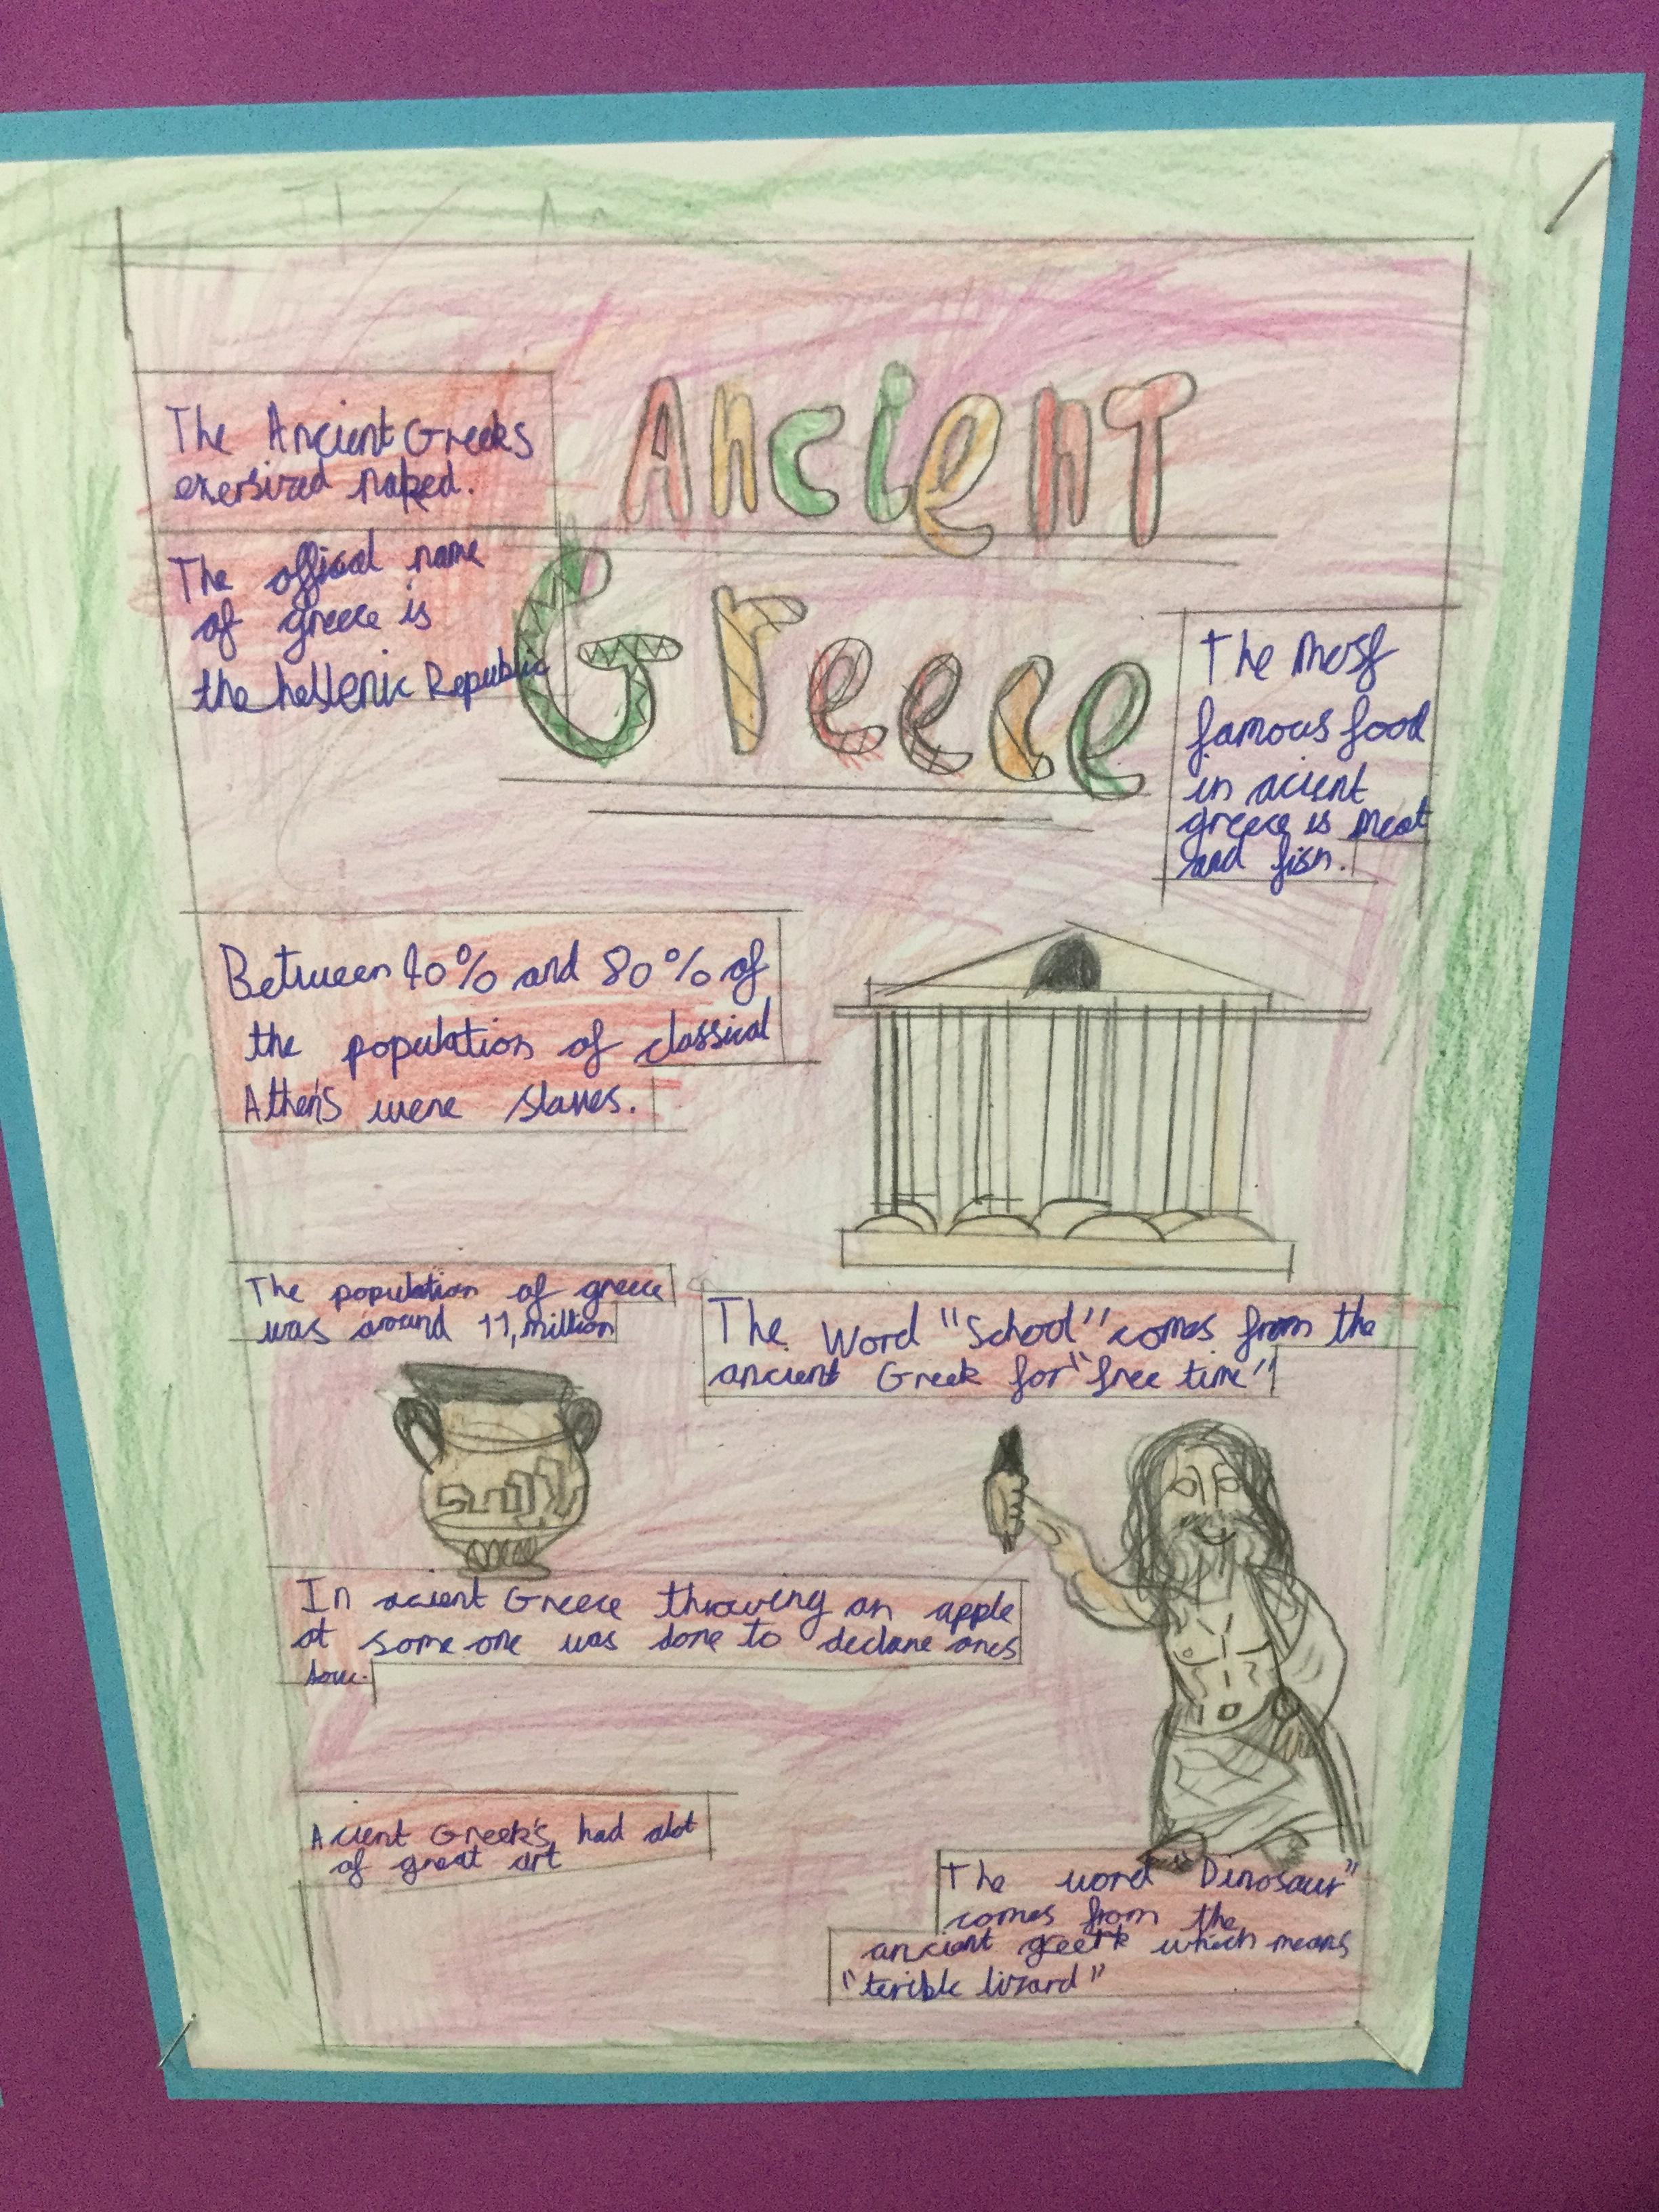 Ancient
Greece
The Ancient Greeks
exersized naked.
The offical name
of greece is
the hellenic Republic
The most
famous food
in acient
greece is meat
and fish.
Between 40% and 80% of
the population of classical
Athen's were slaves.
The population of greece
was around 11,million
The Word "School" comes from the
ancient Greek for "free time"
In acient Greece throwing an apple
at some one was done to declare ones
love.
Acient Greek's had alot
of great art
The word "Dinosaur"
comes from the
ancient greek which means
"terible lizard"